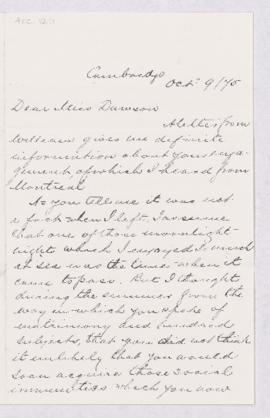 Acc. 1211
Cambridge
Oct 9/75
Dear Miss Dawson
A letter from
William gives me definite
information about your enga-
gement of which I heard from
Montreal
As you tell me it was not
a fact when I left, I presume
that one of those moonlight
nights which I enjoyed so much
at sea was the time when it
came to pass. But I thought
during the summer from the
way in which you spoke of
matrimony and kindred
subjects, that you did not think
it unlikely that you would
soon acquire those social
immunities which you now